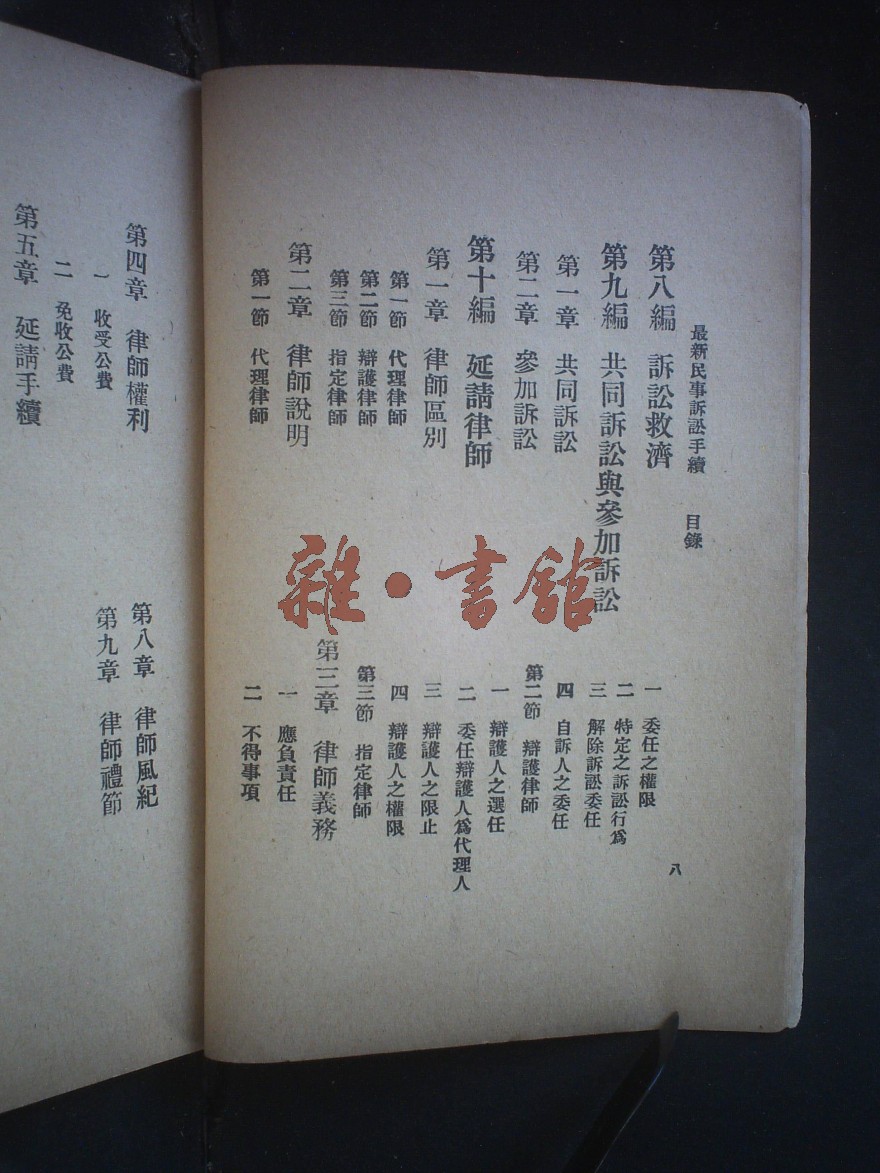 最新民事訴訟手續　目錄
八
第八編　訴訟救濟
第九編　共同訴訟與參加訴訟
第一章　共同訴訟
第二章　參加訴訟
第十編　延請律師
第一章　律師區別
第一節　代理律師
第二節　辯護律師
第三節　指定律師
第二章　律師說明
第一節　代理律師
一　委任之權限
二　特定之訴訟行爲
三　解除訴訟委任
四　自訴人之委任
第二節　辯護律師
一　辯護人之選任
二　委任辯護人爲代理人
三　辯護人之限止
四　辯護人之權限
第三節　指定律師
第三章　律師義務
一　應負責任
二　不得事項
第四章　律師權利
一　收受公費
二　免收公費
第五章　延請手續
第八章　律師風紀
第九章　律師禮節
雜·書館